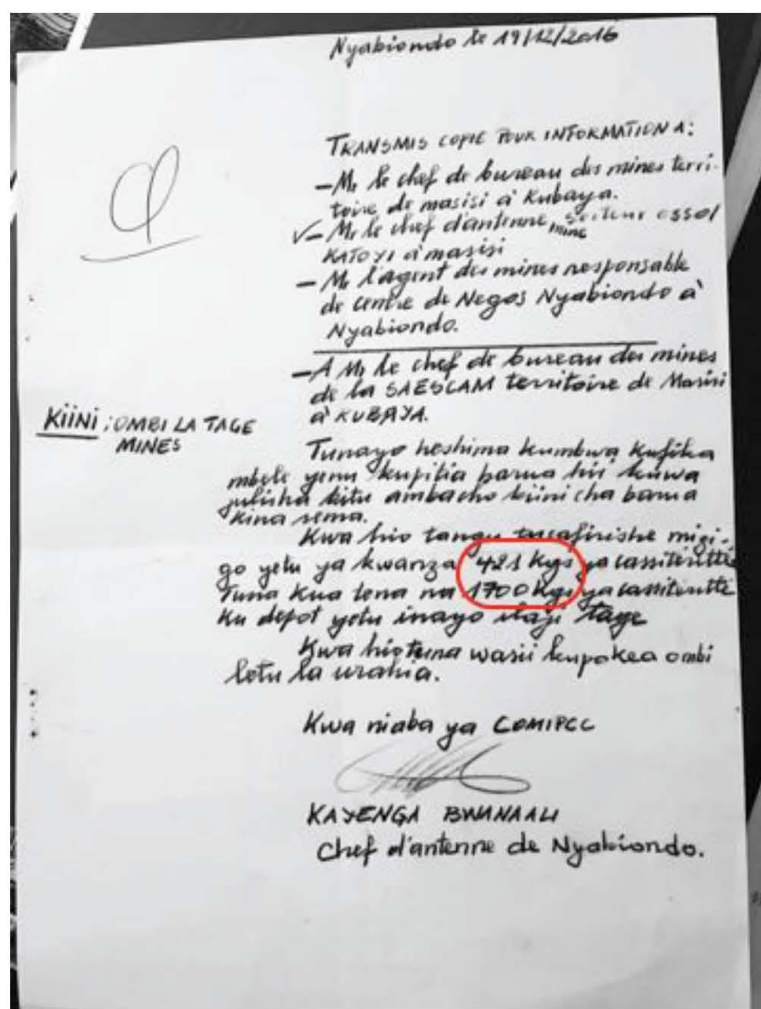 Nyabiondo le 19/12/2016
TRANSMIS COPIE POUR INFORMATION A:
- Mr le chef de bureau des mines terri-
toire de masisi à Rubaya.
✓- Mr le chef d'antenne, secteur ossol
mine
KATOYI à masisi
- Mr l'agent des mines responsable
de centre de Negos Nyabiondo à
Nyabiondo.
- A Mr le chef de bureau des mines
de la SAESCAM territoire de Masisi
à RUBAYA.
KIINI : OMBI LA TAGE
MINES
Tunayo heshima kumbwa kufika
mbele yenu kupitia barua hii kuwa
julisha kitu ambacho kiini cha barua
kina sema.
Kwa hio tangu tusafirishe mizi-
go yetu ya kwanza 421 kgs ya cassiteritte
Tuna kua tena na 1700 kgs ya cassiteritte
ku depot yetu inayo itaji tage
Kwa hio tuna wasii kupokea ombi
letu la urahia.
Kwa niaba ya COMIPCC
KAYENGA BWANAALI
Chef d'antenne de Nyabiondo.